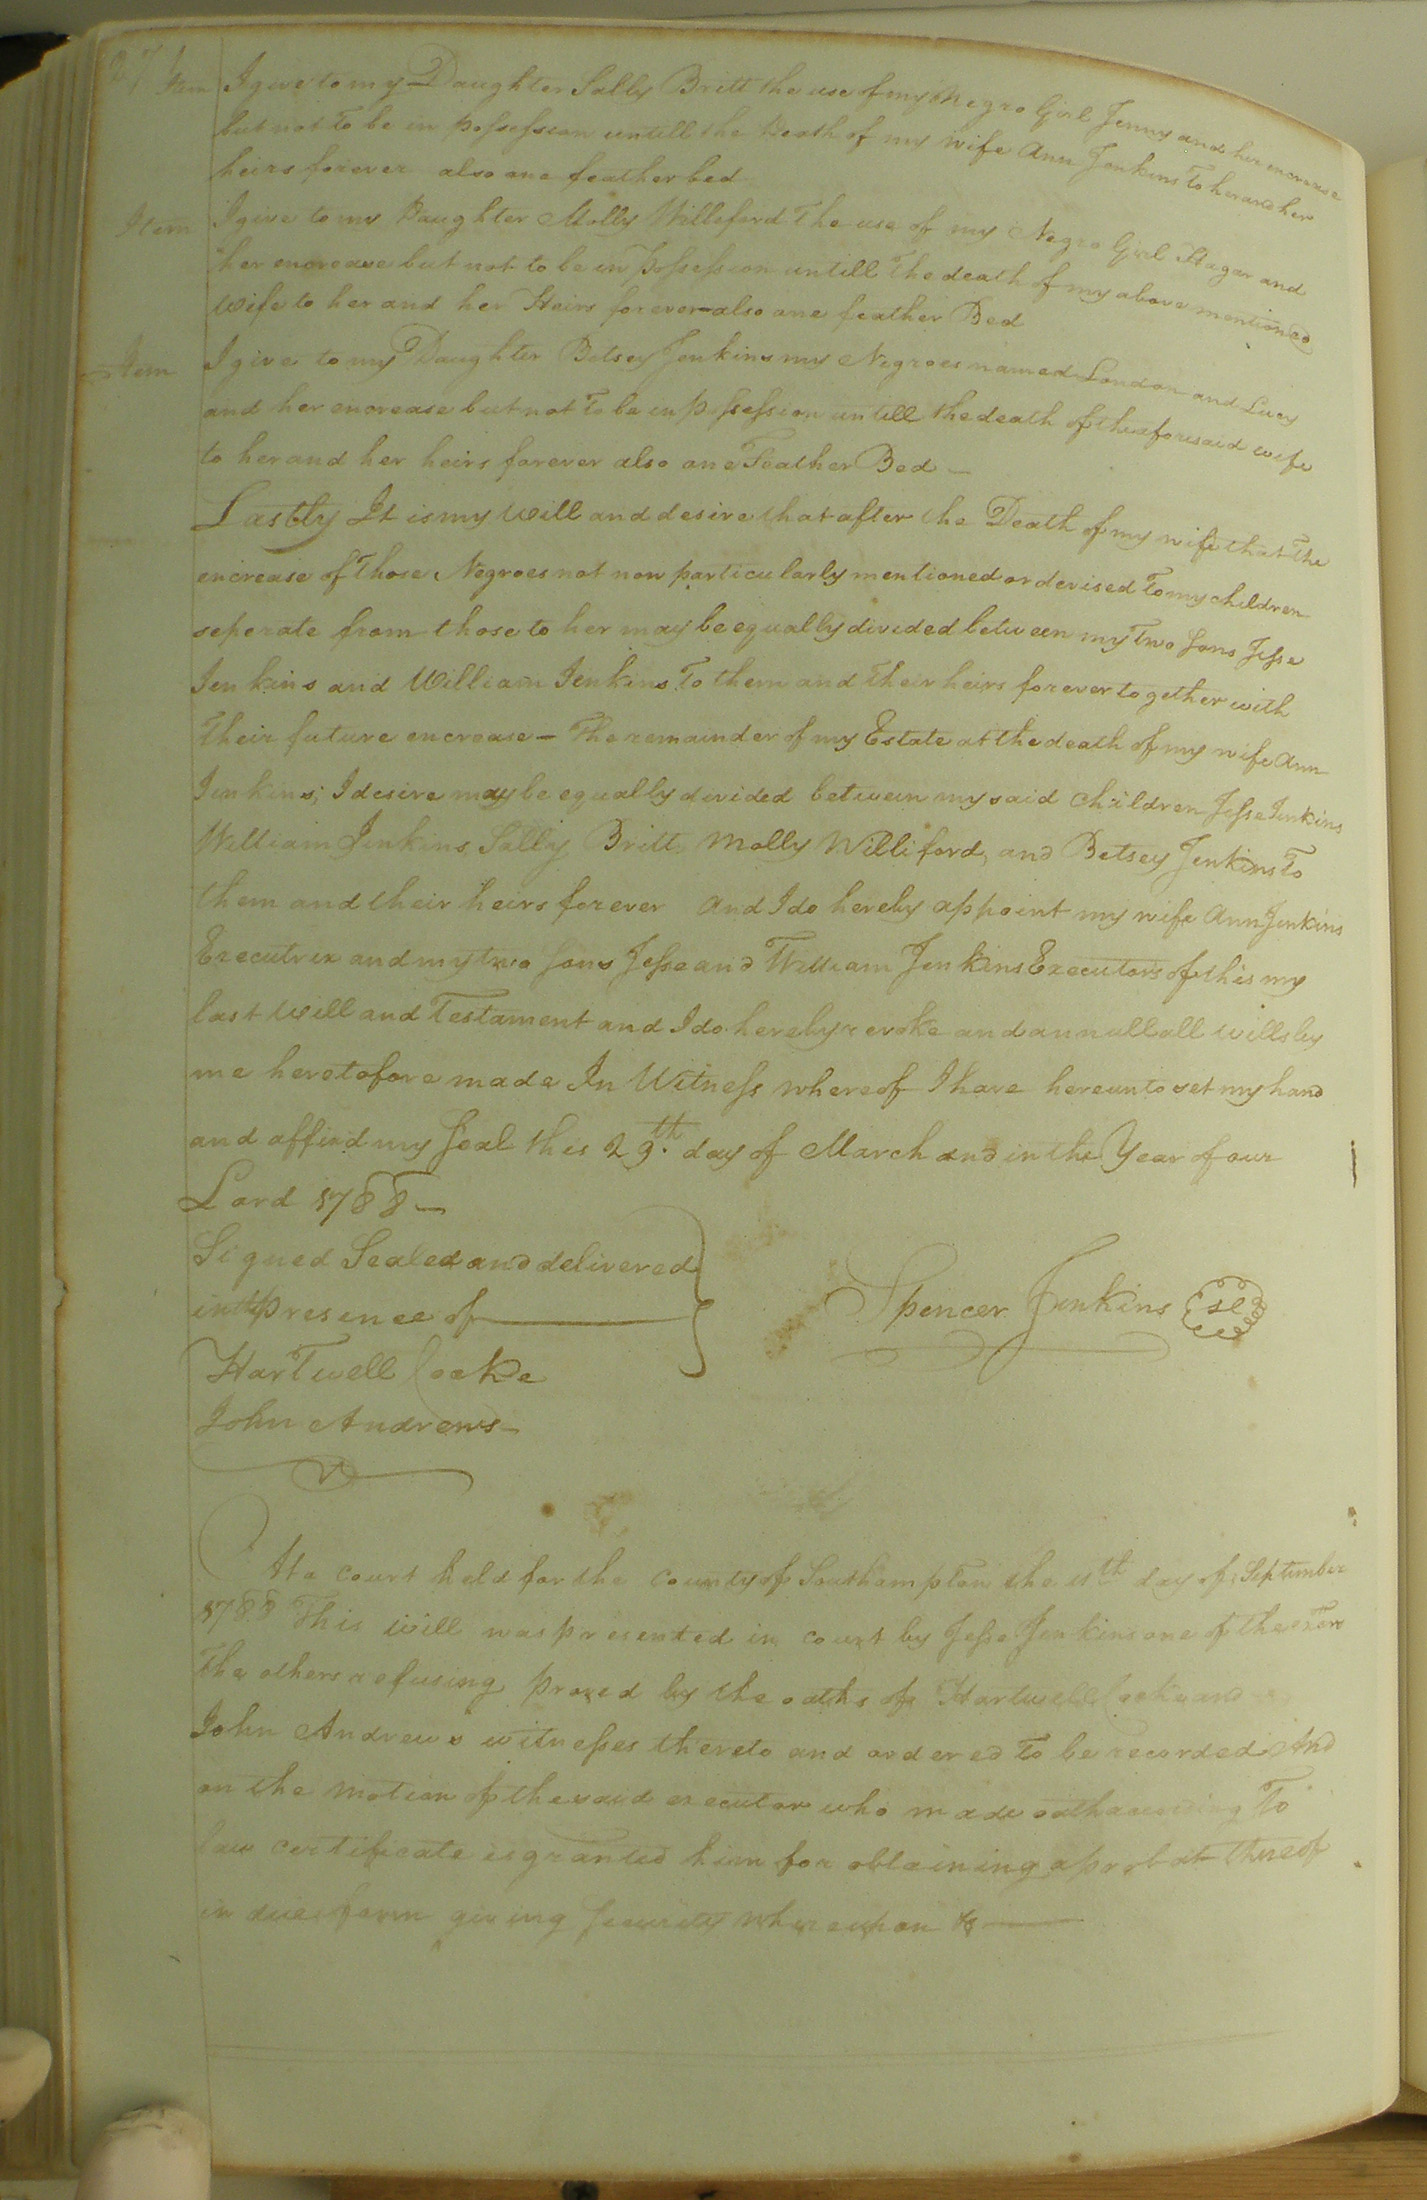 Item I give to my Daughter Sally Britt the use of my Negro Girl Jenny and her encrease
but not to be in possession untill the Death of my wife Ann Jenkins to her and her
heirs forever also one feather bed
Item I give to my Daughter Molly Williford The use of my Negro Girl Hagar and
her encrease but not to be in possession untill the death of my above mentioned
wife to her and her Heirs forever also one feather Bed
Item I give to my Daughter Betsey Jenkins my Negroes named London and Lucy
and her encrease but not to be in possession untill the death of the aforesaid wife
to her and her heirs forever also one Feather Bed —
Lastly It is my will and desire that after the Death of my wife that the
encrease of those Negroes not now particularly mentioned or devised to my children
seperate from those to her may be equally divided between my Two Sons Jesse
Jenkins and William Jenkins To them and their heirs forever together with
their future encrease — The remainder of my Estate at the death of my wife Ann
Jenkins; I desire may be equally divided between my said children Jesse Jenkins
William Jenkins, Sally Britt, Molly Williford, and Betsey Jenkins To
them and their heirs forever And I do hereby appoint my wife Ann Jenkins
Executrix and my two Sons Jesse and William Jenkins Executors of this my
last will and Testament and I do hereby revoke and annull all wills by
me heretofore made In Witness whereof I have hereunto set my hand
and affixd my Seal this 29.th day of March and in the Year of our
Lord 1788 —
Signed Sealed and delivered
in the presence of
Spencer Jenkins Sl
Hartwell Cocke
John Andrews —
At a court held for the county of Southampton the 11th day of September
1788 This will was presented in court by Jesse Jenkins one of the exors
The others refusing proved by the oaths of Hartwell Cocke and
John Andrews witnesses thereto and ordered to be recorded And
on the motion of the said executor who made oath according To
law certificate is granted him for obtaining a probat thereof
in due form giving security whereupon &